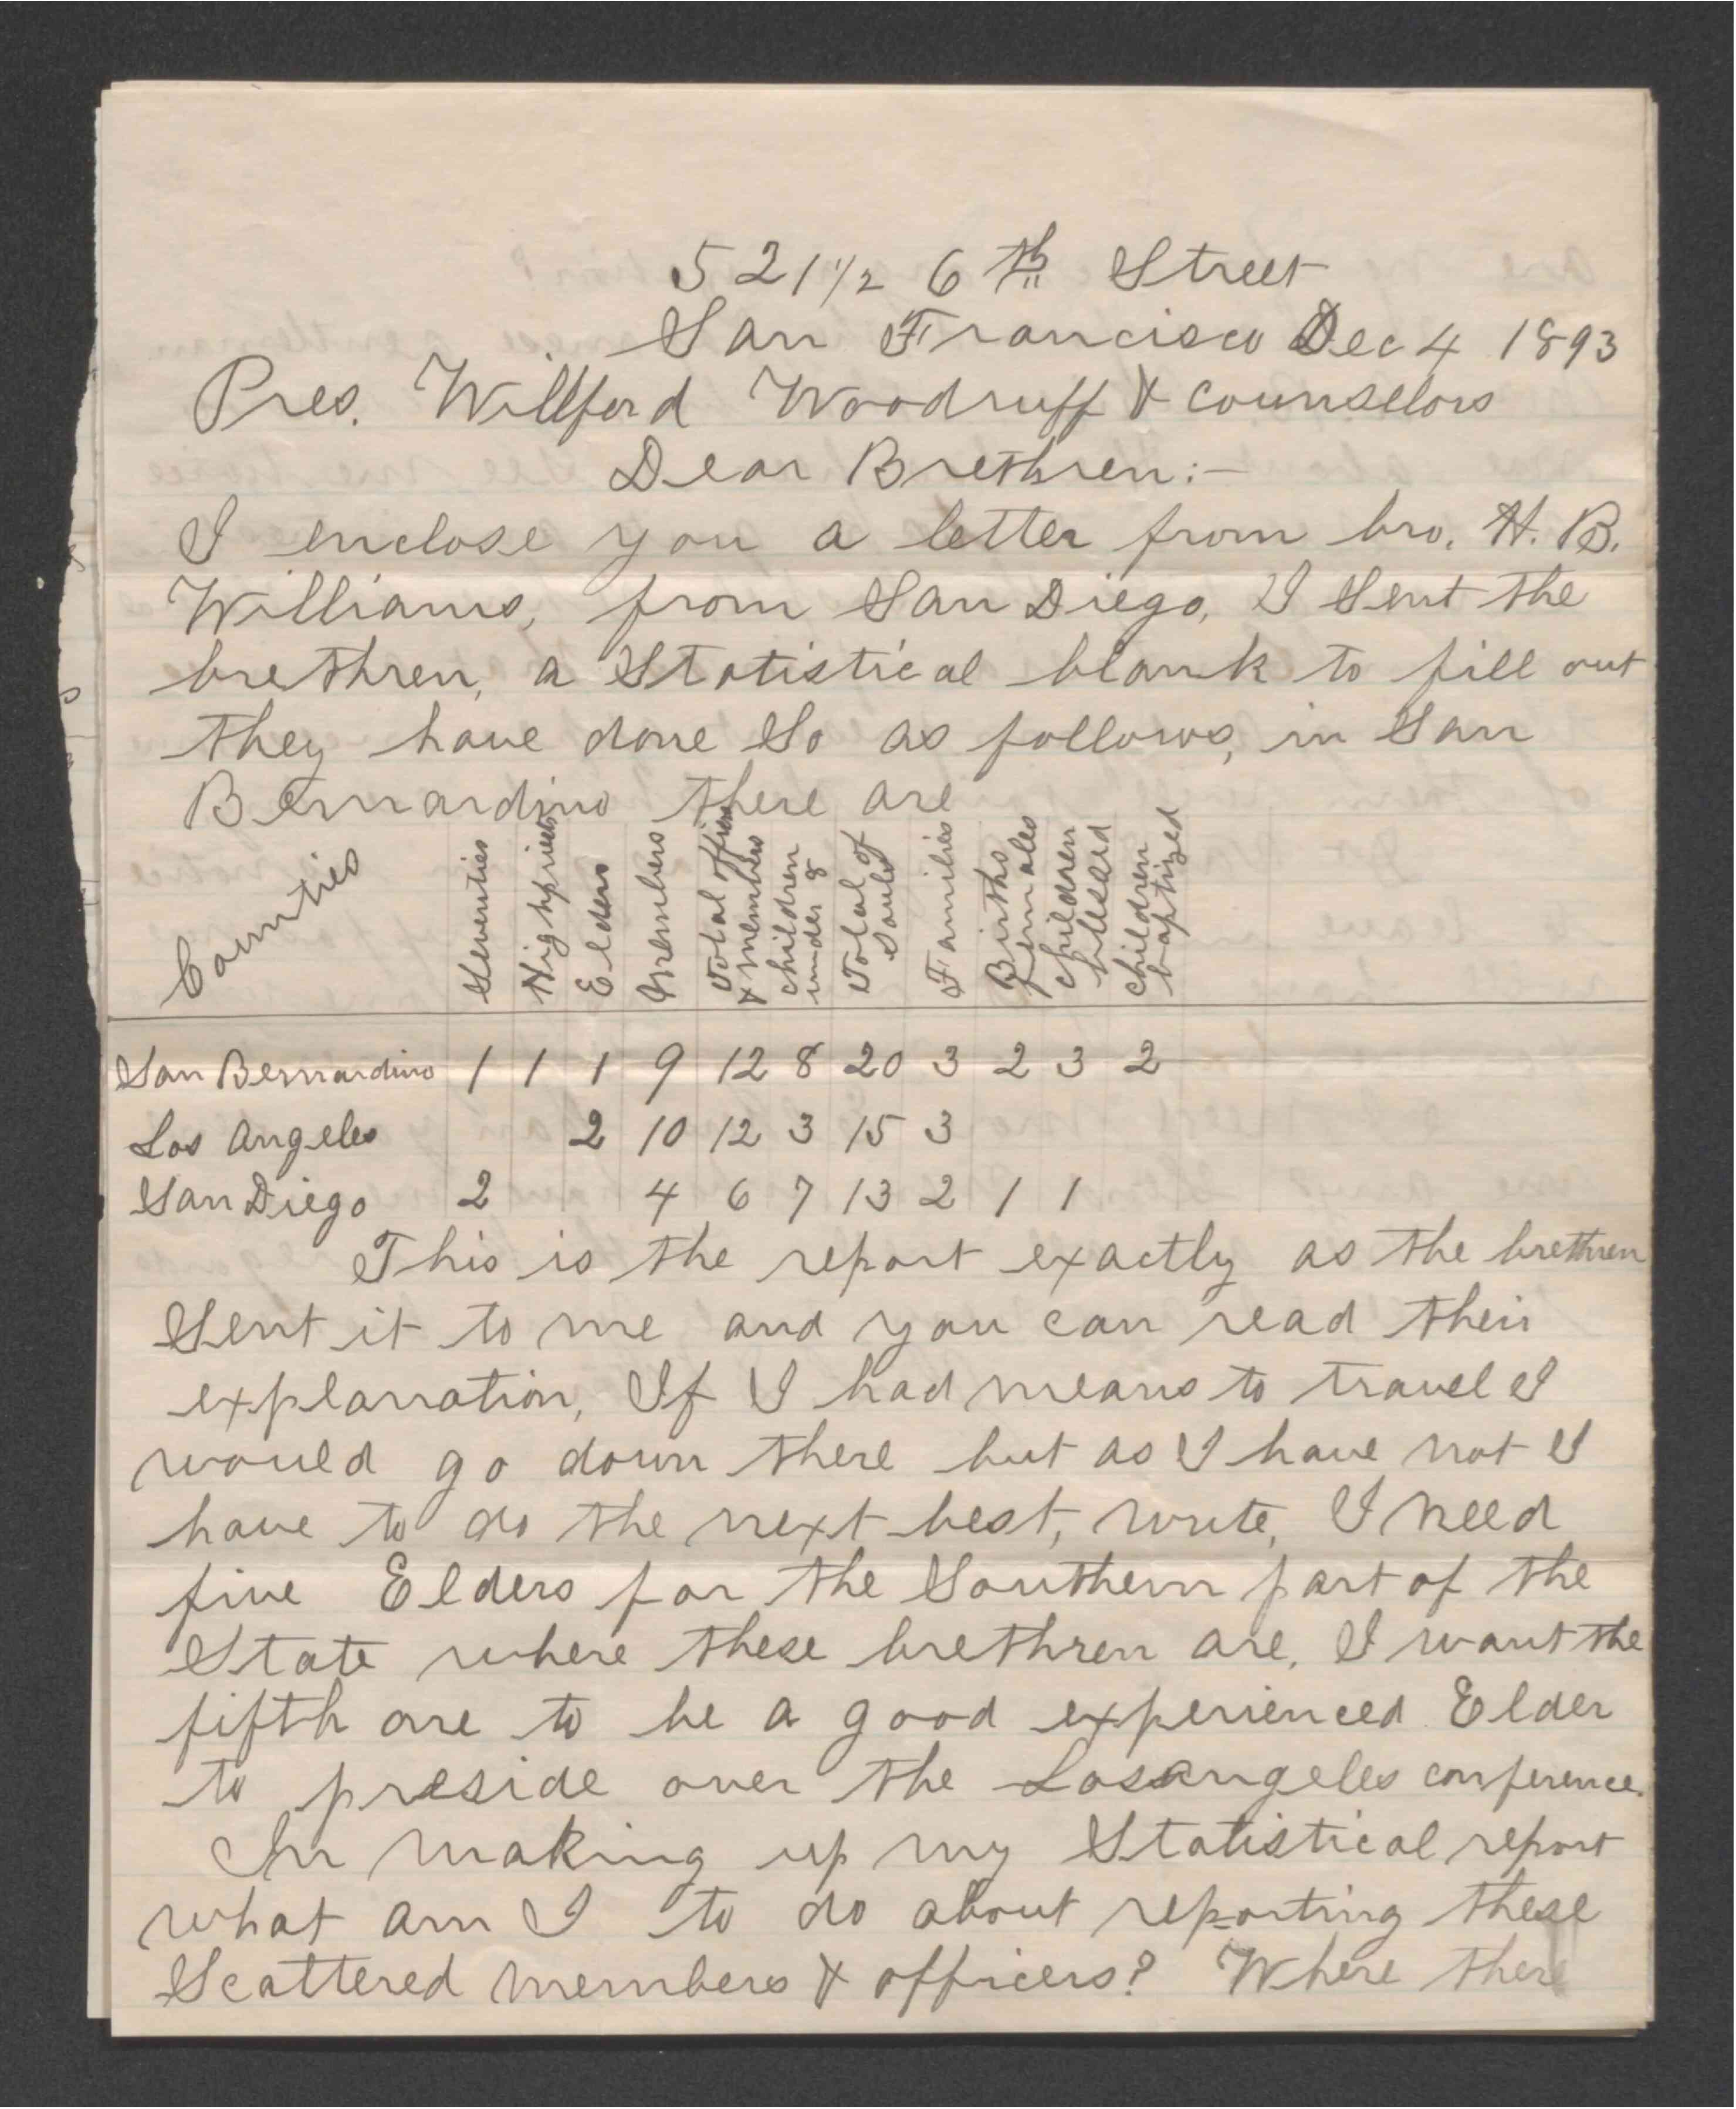 521 1/2 6th Street
San Francisco Dec 4 1893
Pres. Willford Woodruff & Counselors
Dear Brethren:-
I enclose you a letter from bro. H. B.
Williams, from San Diego, I Sent the
brethren, a Statistical blank to fill out
they have done So as follows, in San
Bernardino there are
Counties Seventies Highpriests Elders Members Total officers & members children under 8 Total of Souls Families Births females children blessed children baptized
San Bernardino 1 1 1 9 12 8 20 3 2 3 2
Los Angeles 2 10 12 3 15 3
San Diego 2 4 6 7 13 2 1 1
This is the report exactly as the brethren
Sent it to me and you can read their
explanation, If I had means to travel I
would go down there but as I have not I
have to do the next best, write, I need
five Elders for the Southern part of the
State where these brethren are, I want the
fifth one to be a good experienced Elder
to preside over the Los Angeles conference.
In making up my Statistical report
what am I to do about reporting these
Scattered members & officers? Where there